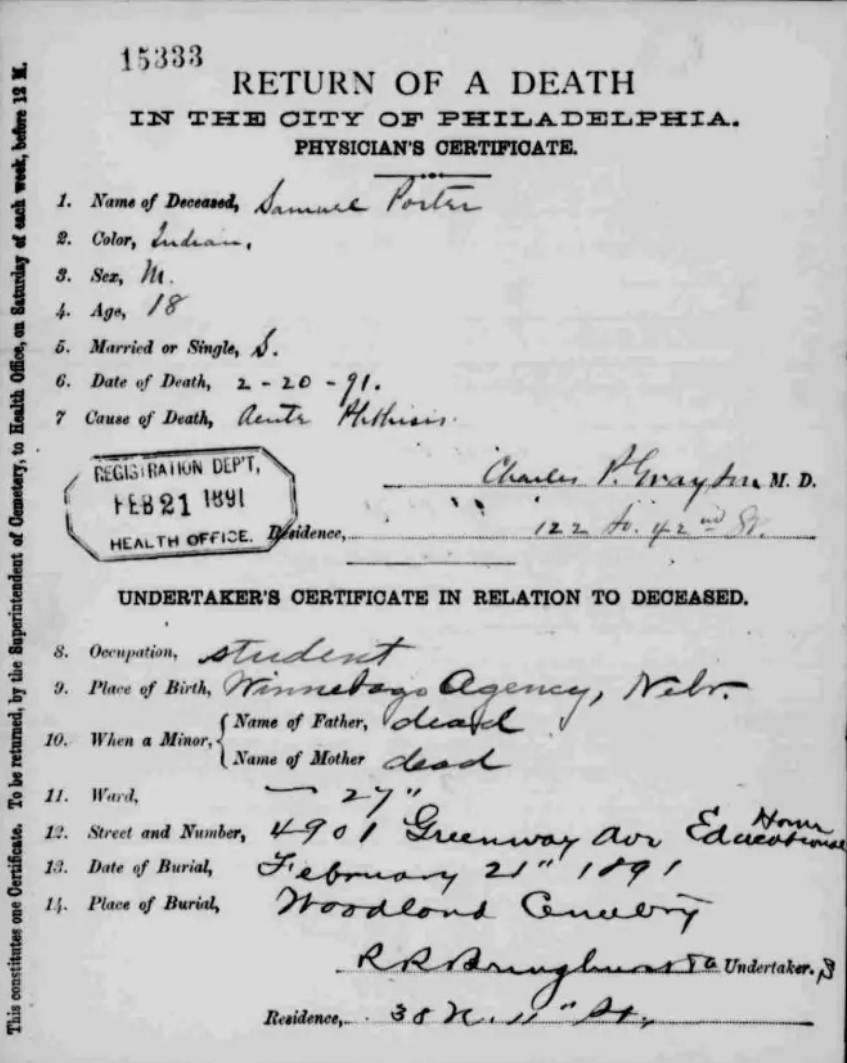 15333
RETURN OF A DEATH
IN THE CITY OF PHILADELPHIA.
PHYSICIAN'S CERTIFICATE.
1. Name of Deceased, Samuel Porter
2. Color, Indian,
3. Sex, M.
4. Age, 18
5. Married or Single, S.
6. Date of Death, 2-20-91.
7 Cause of Death, Acute Phthisis.
Charles P. Grayson M. D.
REGISTRATION DEP'T,
FEB 21 1891
HEALTH OFFICE.
Residence, 122 So. 42nd St.
UNDERTAKER'S CERTIFICATE IN RELATION TO DECEASED.
8. Occupation, student
9. Place of Birth, Winnebago Agency, Nebr.
10. When a Minor, { Name of Father, dead
Name of Mother dead
11. Ward, — 27"
12. Street and Number, 4901 Greenway Ave Educational Home
13. Date of Burial, February 21" 1891
14. Place of Burial, Woodland Cemetery
R R Bringhurst & Co Undertaker.
Residence, 38 N. 11" St.,
This constitutes one Certificate. To be returned, by the Superintendent of Cemetery, to Health Office, on Saturday of each week, before 12 M.